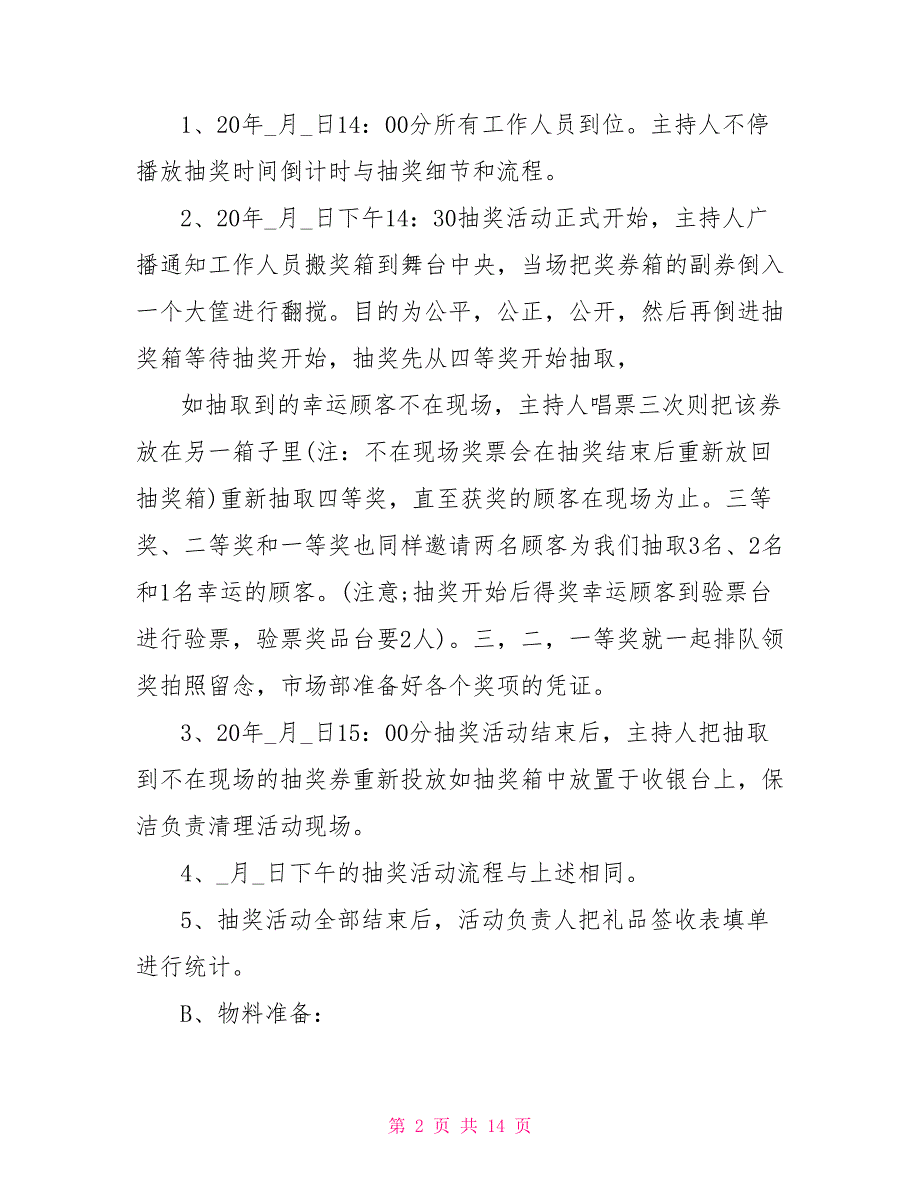 1、20年_月_日14：00分所有工作人员到位。主持人不停
播放抽奖时间倒计时与抽奖细节和流程。
2、20年_月_日下午14：30抽奖活动正式开始，主持人广
播通知工作人员搬奖箱到舞台中央，当场把奖券箱的副券倒入
一个大筐进行翻搅。目的为公平，公正，公开，然后再倒进抽
奖箱等待抽奖开始，抽奖先从四等奖开始抽取，
如抽取到的幸运顾客不在现场，主持人唱票三次则把该券
放在另一箱子里(注：不在现场奖票会在抽奖结束后重新放回
抽奖箱)重新抽取四等奖，直至获奖的顾客在现场为止。三等
奖、二等奖和一等奖也同样邀请两名顾客为我们抽取3名、2名
和1名幸运的顾客。(注意;抽奖开始后得奖幸运顾客到验票台
进行验票，验票奖品台要2人)。三，二，一等奖就一起排队领
奖拍照留念，市场部准备好各个奖项的凭证。
3、20年_月_日15：00分抽奖活动结束后，主持人把抽取
到不在现场的抽奖券重新投放如抽奖箱中放置于收银台上，保
洁负责清理活动现场。
4、_月_日下午的抽奖活动流程与上述相同。
5、抽奖活动全部结束后，活动负责人把礼品签收表填单
进行统计。
B、物料准备：
第 2 页 共 14 页